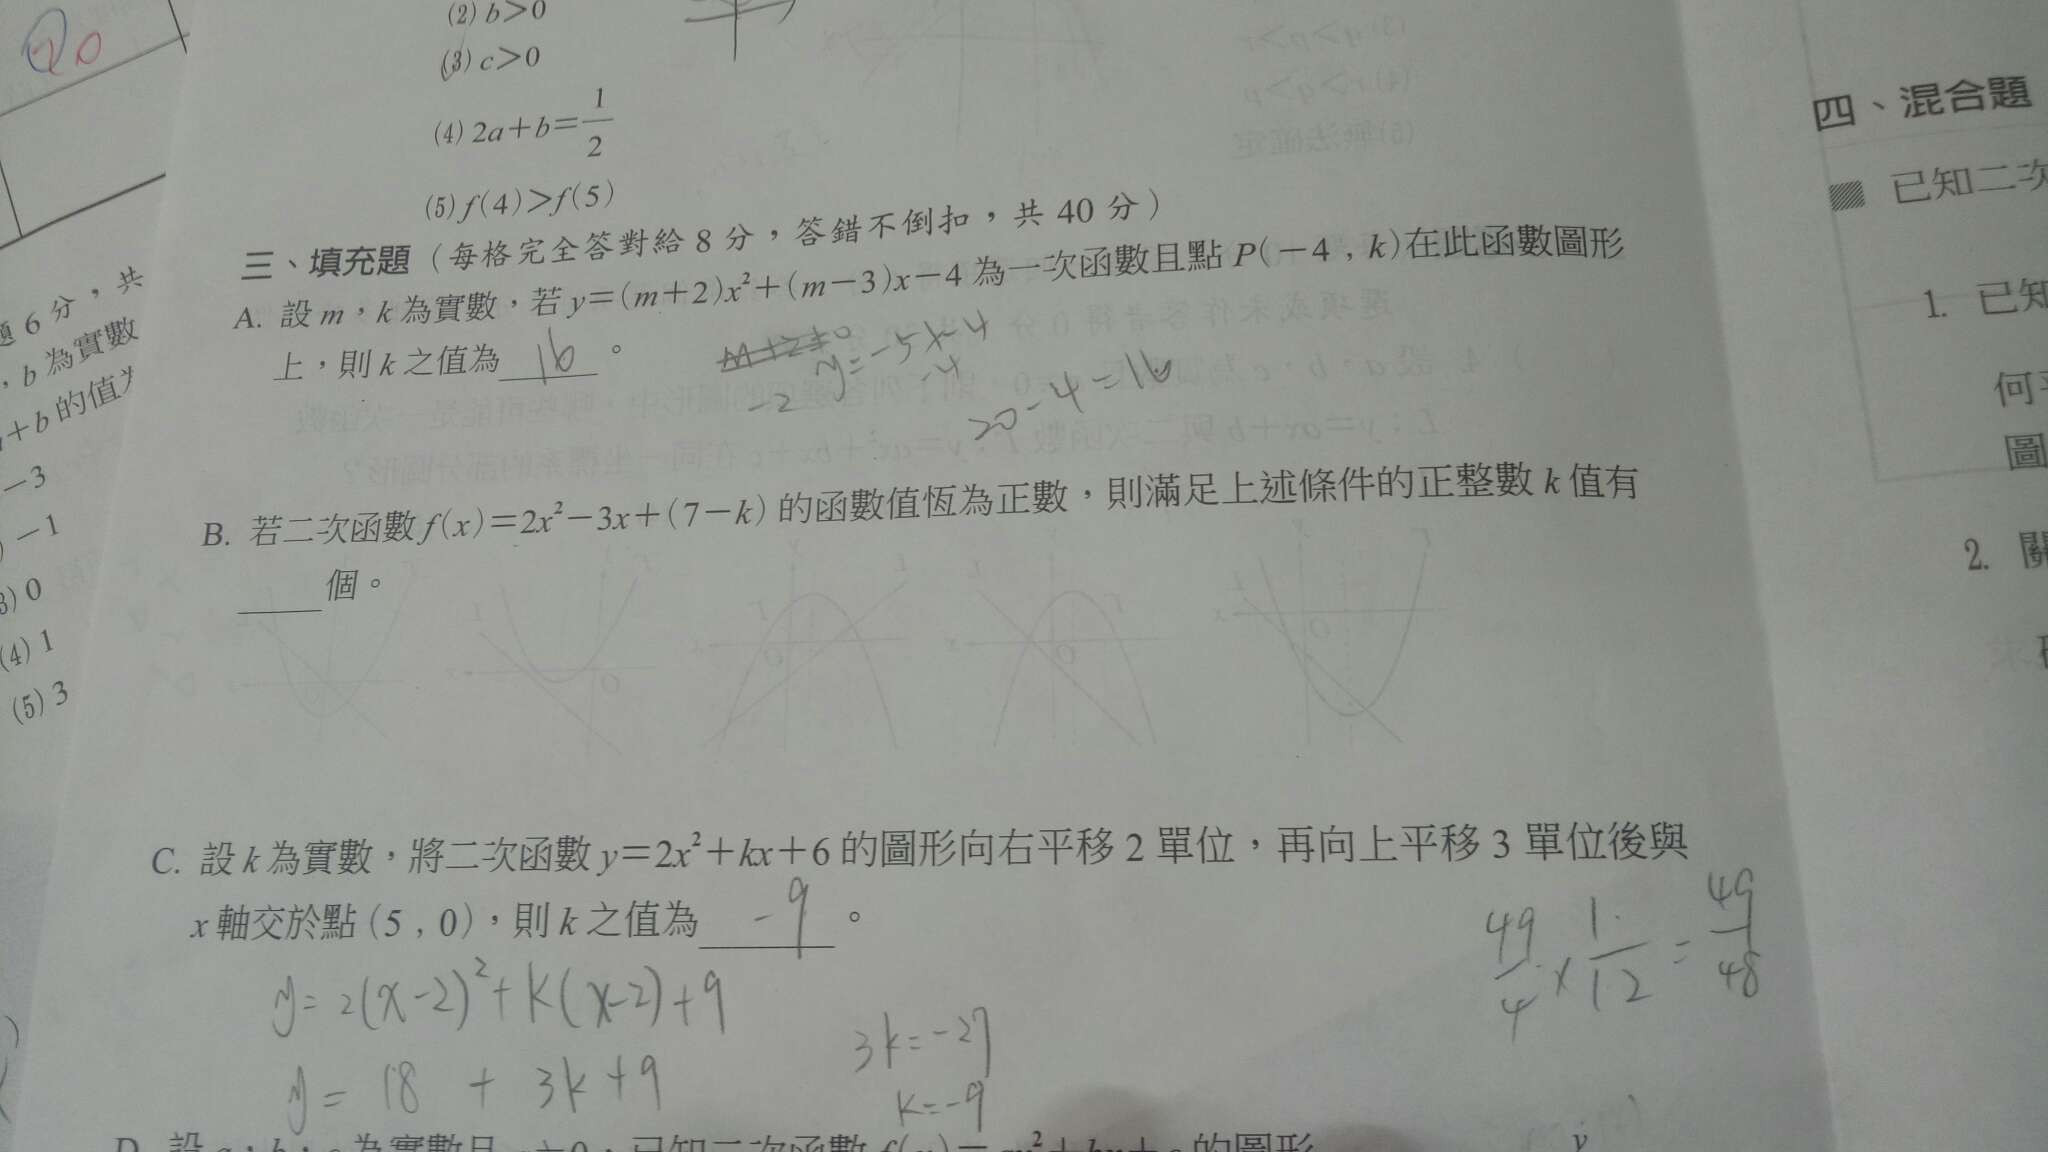 20
(2) b>0
(3) c>0
(4) 2a+b=1/2
(5) f(4)>f(5)
三、填充題（每格完全答對給 8 分，答錯不倒扣，共 40 分）
A. 設 m，k 為實數，若 y=(m+2)x²+(m-3)x-4 為一次函數且點 P(-4 , k)在此函數圖形
上，則 k 之值為 16 。
y=-5x-4
-2
-4
20-4=16
B. 若二次函數 f(x)=2x²-3x+(7-k) 的函數值恆為正數，則滿足上述條件的正整數 k 值有
____個。
C. 設 k 為實數，將二次函數 y=2x²+kx+6 的圖形向右平移 2 單位，再向上平移 3 單位後與
x 軸交於點 (5 , 0)，則 k 之值為 -9 。
y=2(x-2)²+k(x-2)+9
y= 18 + 3k+9
3k=-27
k=-9
49/4 x 1/12 = 49/48
題 6 分，共
，b 為實數
a+b 的值為
-3
-1
(3) 0
(4) 1
(5) 3
四、混合題
已知二次
1. 已知
何
圖
2. 關
y